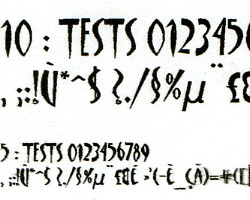 10 : TESTS 0123456
, ;:!Ù*^$ ?./§%µ ¨ £
5 : TESTS 0123456789
,;:!Ù*^$ ?./§%µ ¨ £